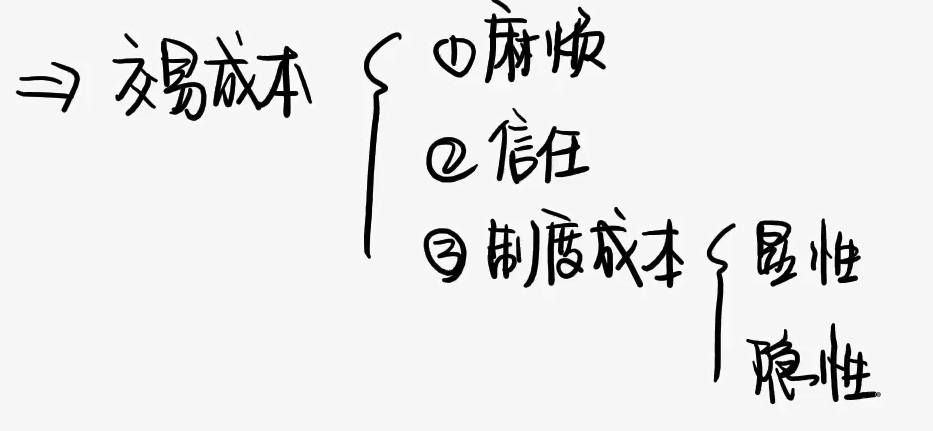 ⇒ 交易成本
① 麻烦
② 信任
③ 制度成本
显性
隐性